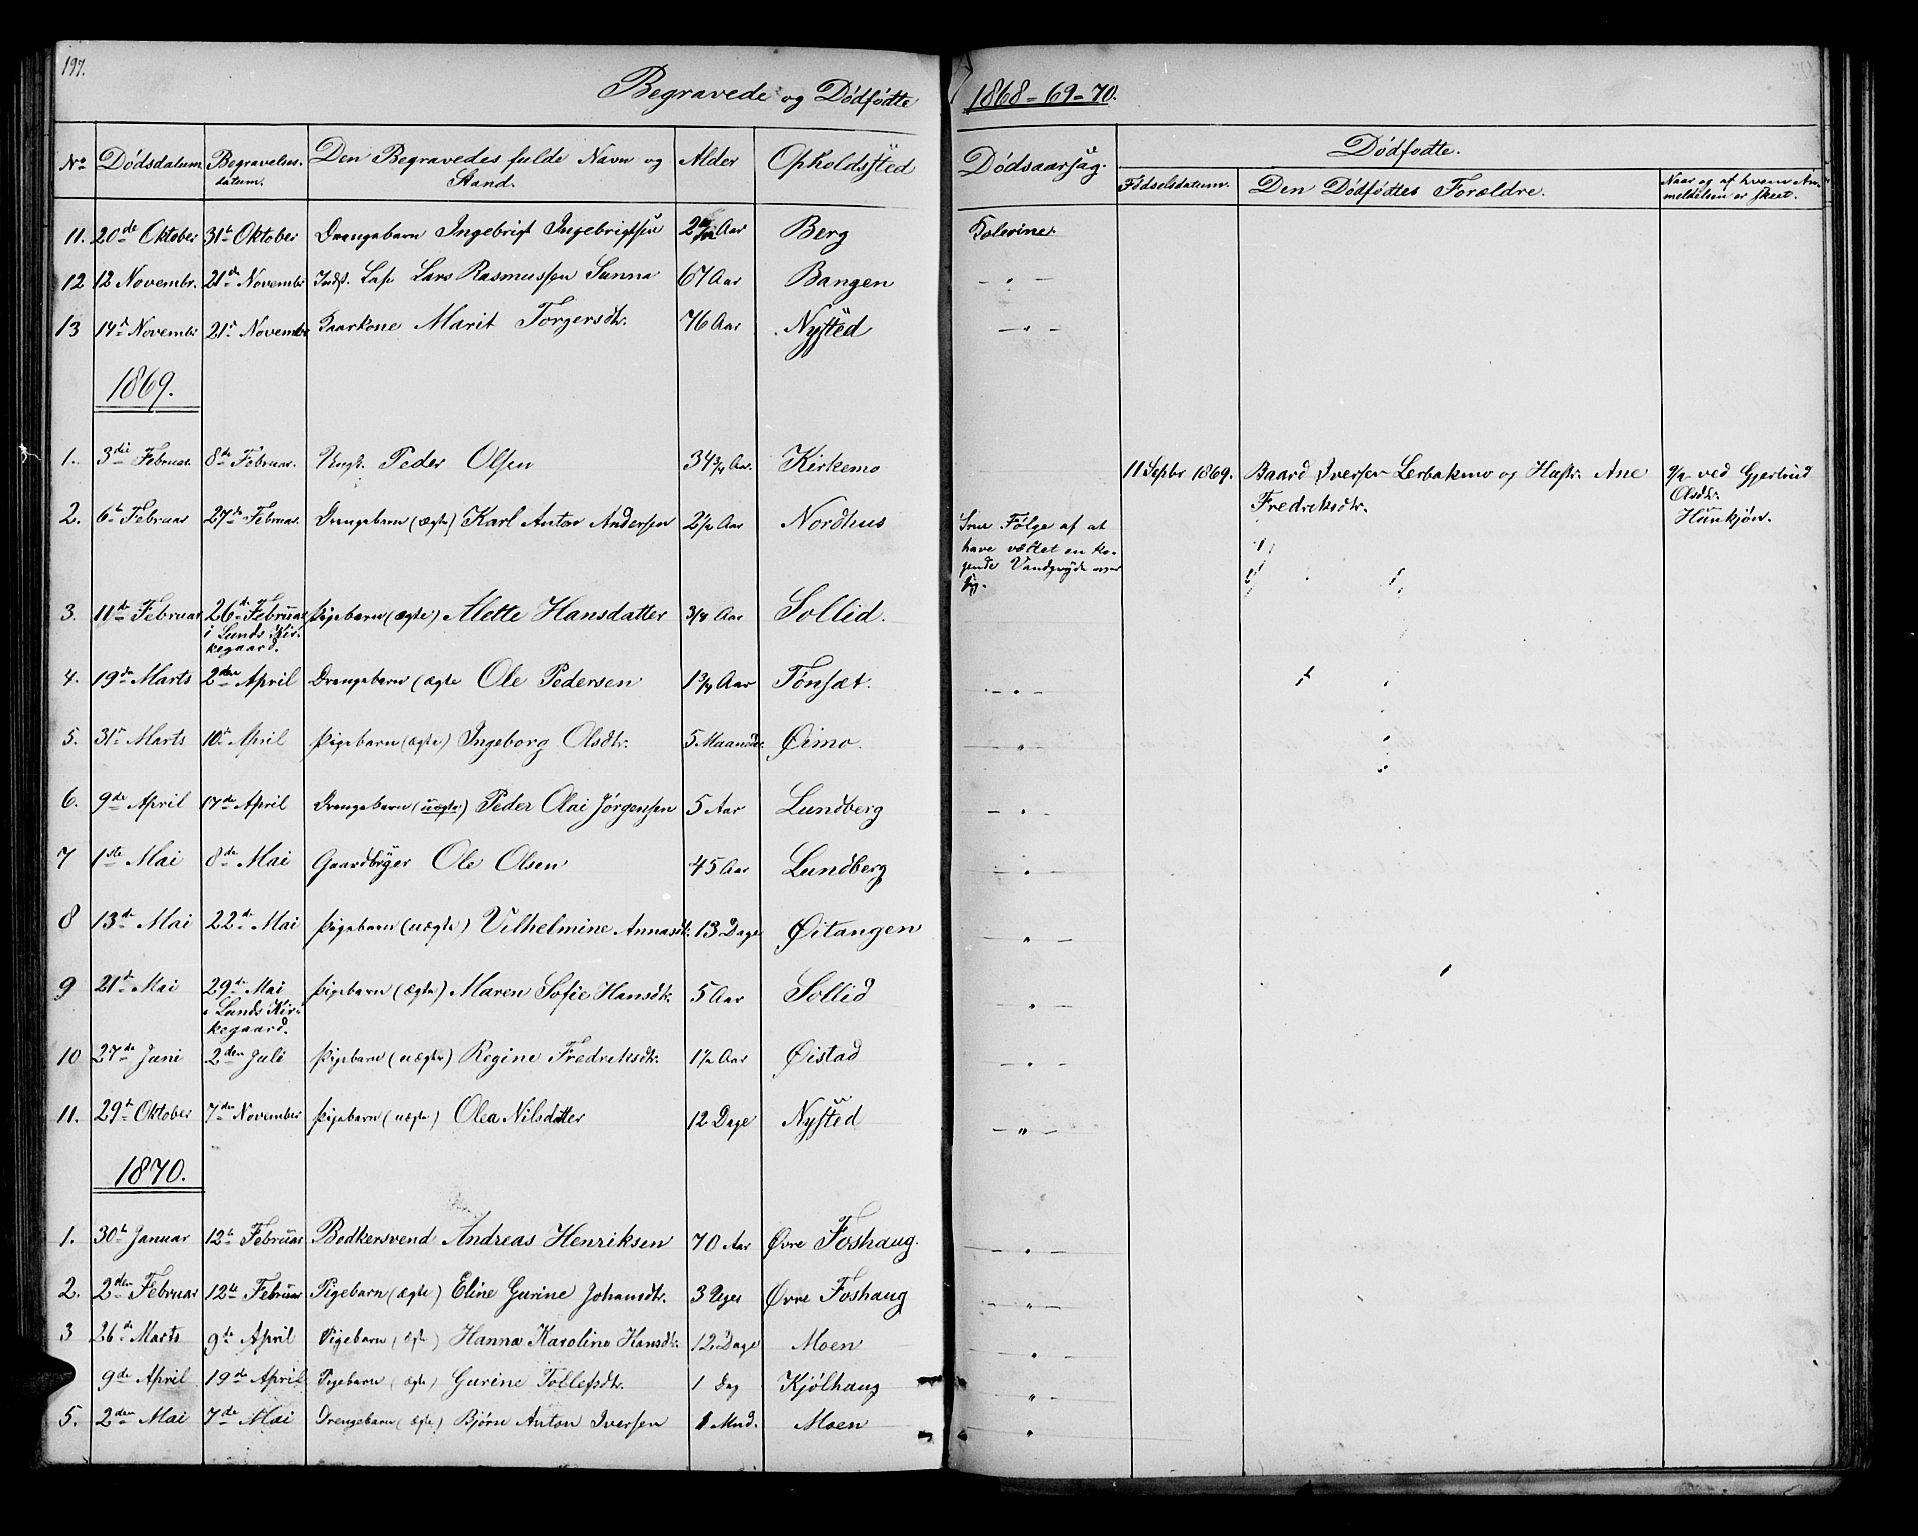 197.
Begravede og Dödfödte 1868-69-70.
No Dödsdatum Begravelses-datum. Den Begravedes fulde Navn og Stand. Alder Opholdssted Dödsaarsag. Dödfödte.
Födselsdatum. Den Dödfödtes Forældre. Naar og af hvem Anmeldelsen er skeet.
11. 20de Oktober 31te Oktober Drengebarn Ingebrigt Ingebrigtsen Aar Berg Kolerine.
12 12 Novembr. 21de November Inds. Lap Lars Rasmussen Sunna 67 Aar Bangen - " -
13 14d November 21d November Gaarkone Marit Torgersdtr. 76 Aar Nysted - " -
1869.
1. 3die Februar. 8de Februar. Ungk. Peder Olsen 34 3/4 Aar. Kirkemo
11 Septbr 1869. Baard Iversen Lerbakmo og Hustr. Ane Fredriksdtr. ved Gjertrud Olsdtr. Hunkjön.
2. 6te Februar 27de Februar. Drengebarn (ægte) Karl Anton Andersen 2 1/2 Aar Nordhus
Som Følge af at
have væltet en ko-
gende Vandgryde over
sig.
3. 11te Februar 26de Februar Pigebarn (ægte) Alette Hansdatter 3/4 Aar Sollid.
i Lunds Kir-
kegaard.
4. 19de Marts 2den April Drengebarn (ægte Ole Pedersen 1 3/4 Aar Tönsæt. - " -
5. 31te Marts 10de April Pigebarn (ægte) Ingeborg Olsdtr. 5 Maaneder Øimo. - " -
6. 9de April 17de April Drengebarn (uægte) Peder Olai Jörgensen 5 Aar Lundberg - " -
7 1ste Mai 8de Mai Gaardbryger Ole Olsen 45 Aar Lundberg - " -
8 13de Mai 22de Mai Pigebarn (uægte) Vilhelmine Annasdtr. 13 Dage Øitangen - " -
9 21de Mai 29de Mai Pigebarn (ægte) Maren Sofie Hansdtr. 5 Aar Sollid - " -
i Lunds Kir-
kegaard.
10 27de Juni 2den Juli Pigebarn (uægte) Regine Fredriksdtr. 1 1/2 Aar Øistad - " -
11. 29de Oktober 7de November Pigebarn (uægte) Olea Nilsdatter 12 Dage Nysted - " -
1870.
1. 30te Januar 12te Februar Bødkersvend Andreas Henriksen 70 Aar Øvre Foshaug. - " -
2. 2den Februar 12te Februar Pigebarn (ægte) Eline Gurine Johansdtr. 3 Uger Øvre Foshaug - " -
3 26de Marts 9de April Pigebarn (ægte) Hanna Karoline Hansdtr. 12 Dage Moen "
9de April 19de April Pigebarn (ægte) Gurine Tollefsdtr. 1 Dag Kjölhaug - " -
5. 2den Mai 7de Mai Drengebarn (ægte) Björn Anton Iversen 1 Mnd. Moen "